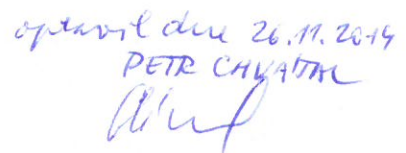 opravil dne 26.11.2014
PETR CHVÁTAL